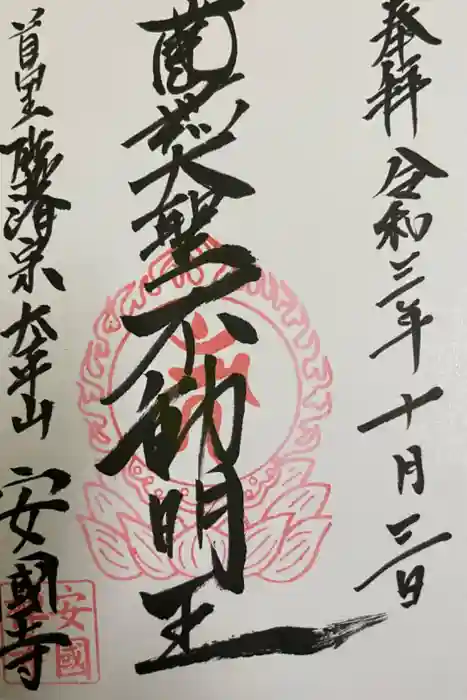 奉拝 令和三年十月三日
南無大聖不動明王
首里 臨済宗 太平山 安國寺
安國